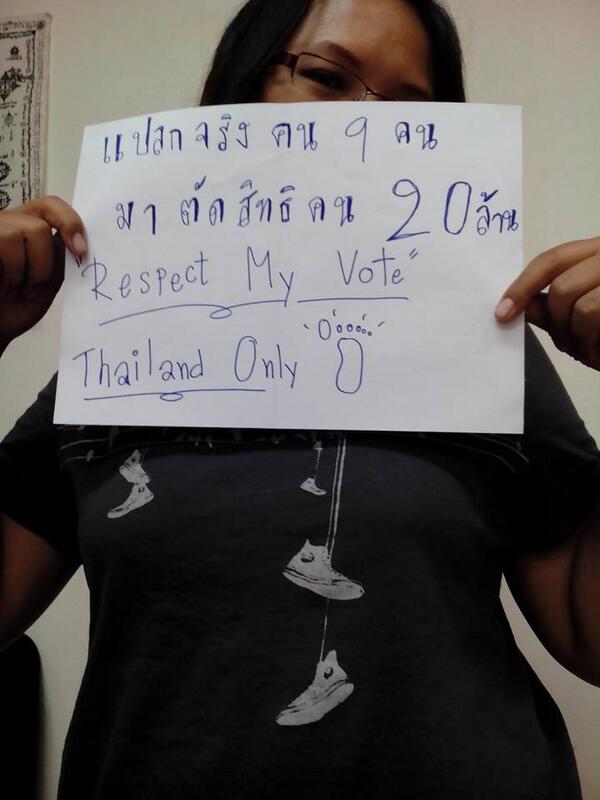 แปลกจริง คน 9 คน
มา ตัดสิทธิคน 20 ล้าน
"Respect My Vote"
Thailand Only